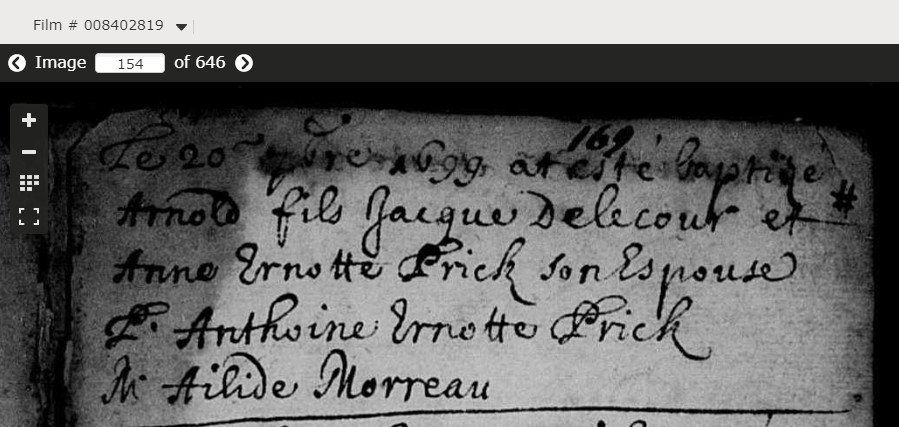 Film # 008402819
Image 154 of 646
169
Le 20e 9bre 1699 at esté baptize
Arnold fils Jacque Delecour et #
Anne Ernotte Prick son Espouse
P. Anthoine Ernotte Prick
M. Ailide Morreau